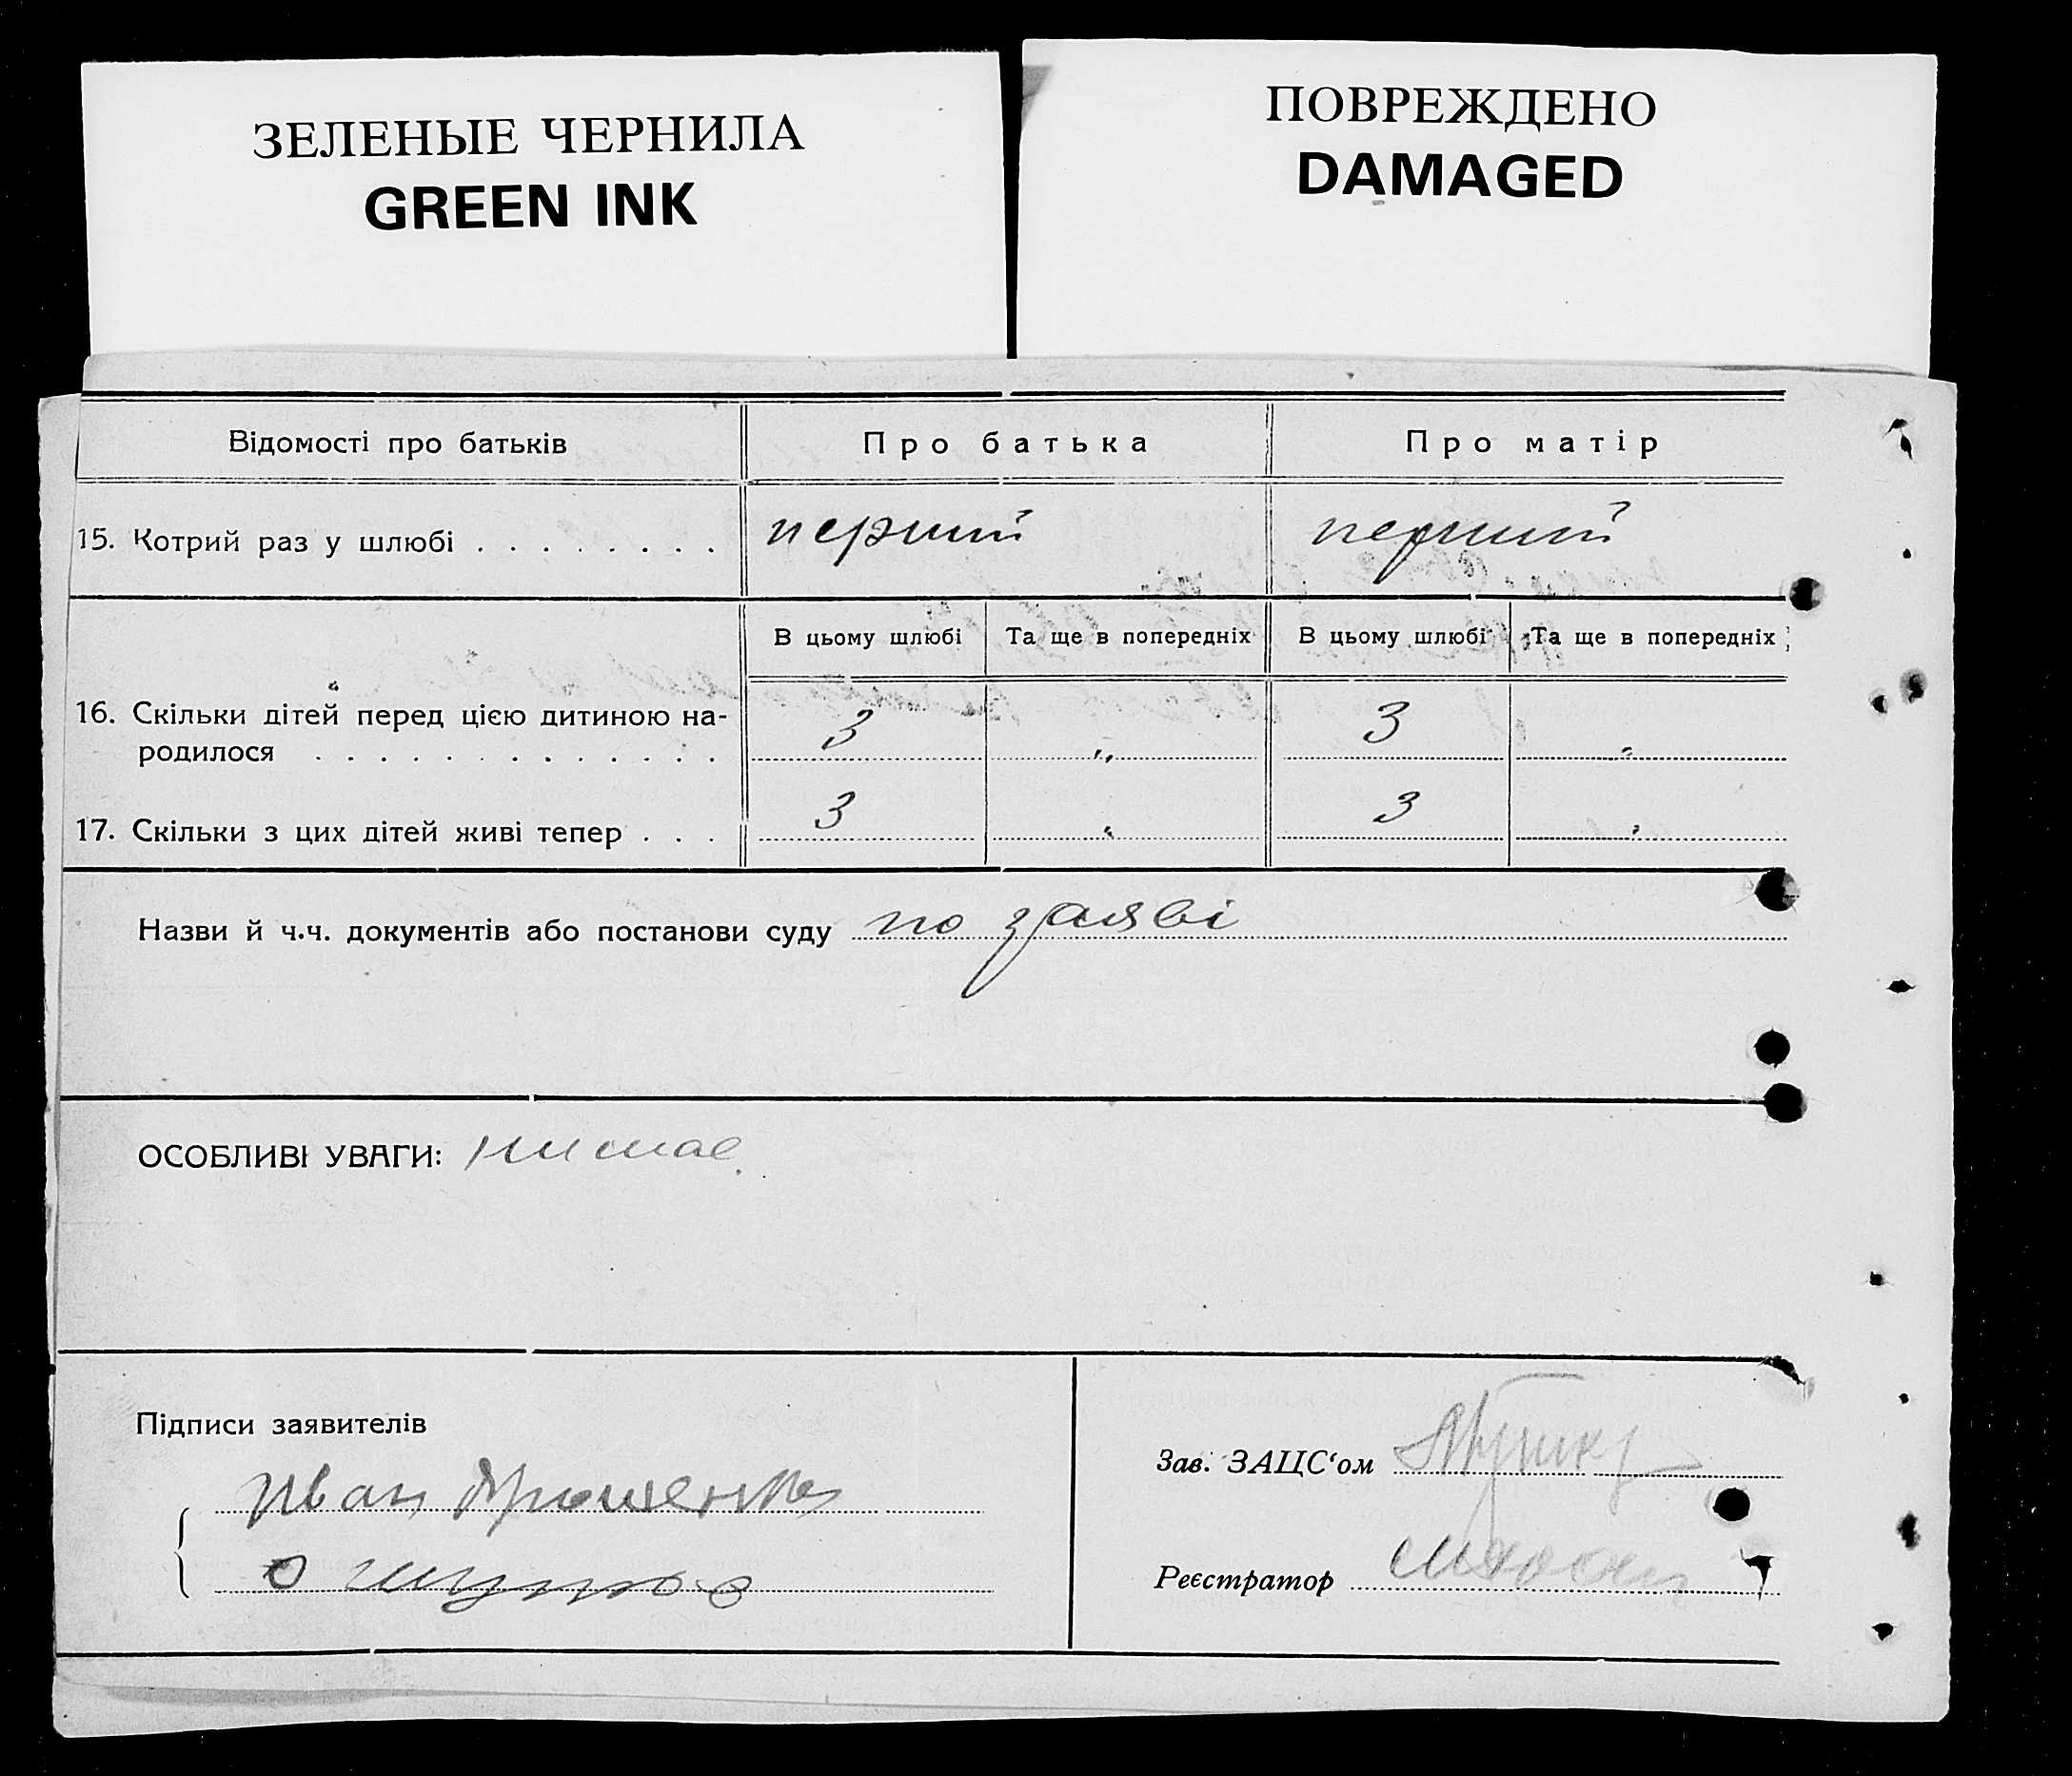 ЗЕЛЕНЫЕ ЧЕРНИЛА
GREEN INK
ПОВРЕЖДЕНО
DAMAGED
Відомості про батьків Про батька Про матір
15. Котрий раз у шлюбі . . . . . . . . перший перший
В цьому шлюбі Та ще в попередніх В цьому шлюбі Та ще в попередніх
16. Скільки дітей перед цією дитиною на-
родилося . . . . . . . . . . . . . 3 „ 3 „
17. Скільки з цих дітей живі тепер . . . 3 „ 3 „
Назви й ч.ч. документів або постанови суду по заяві
ОСОБЛИВІ УВАГИ: нимае.
Підписи заявителів
Иван
Зав. ЗАЦС‘ом
Реєстратор